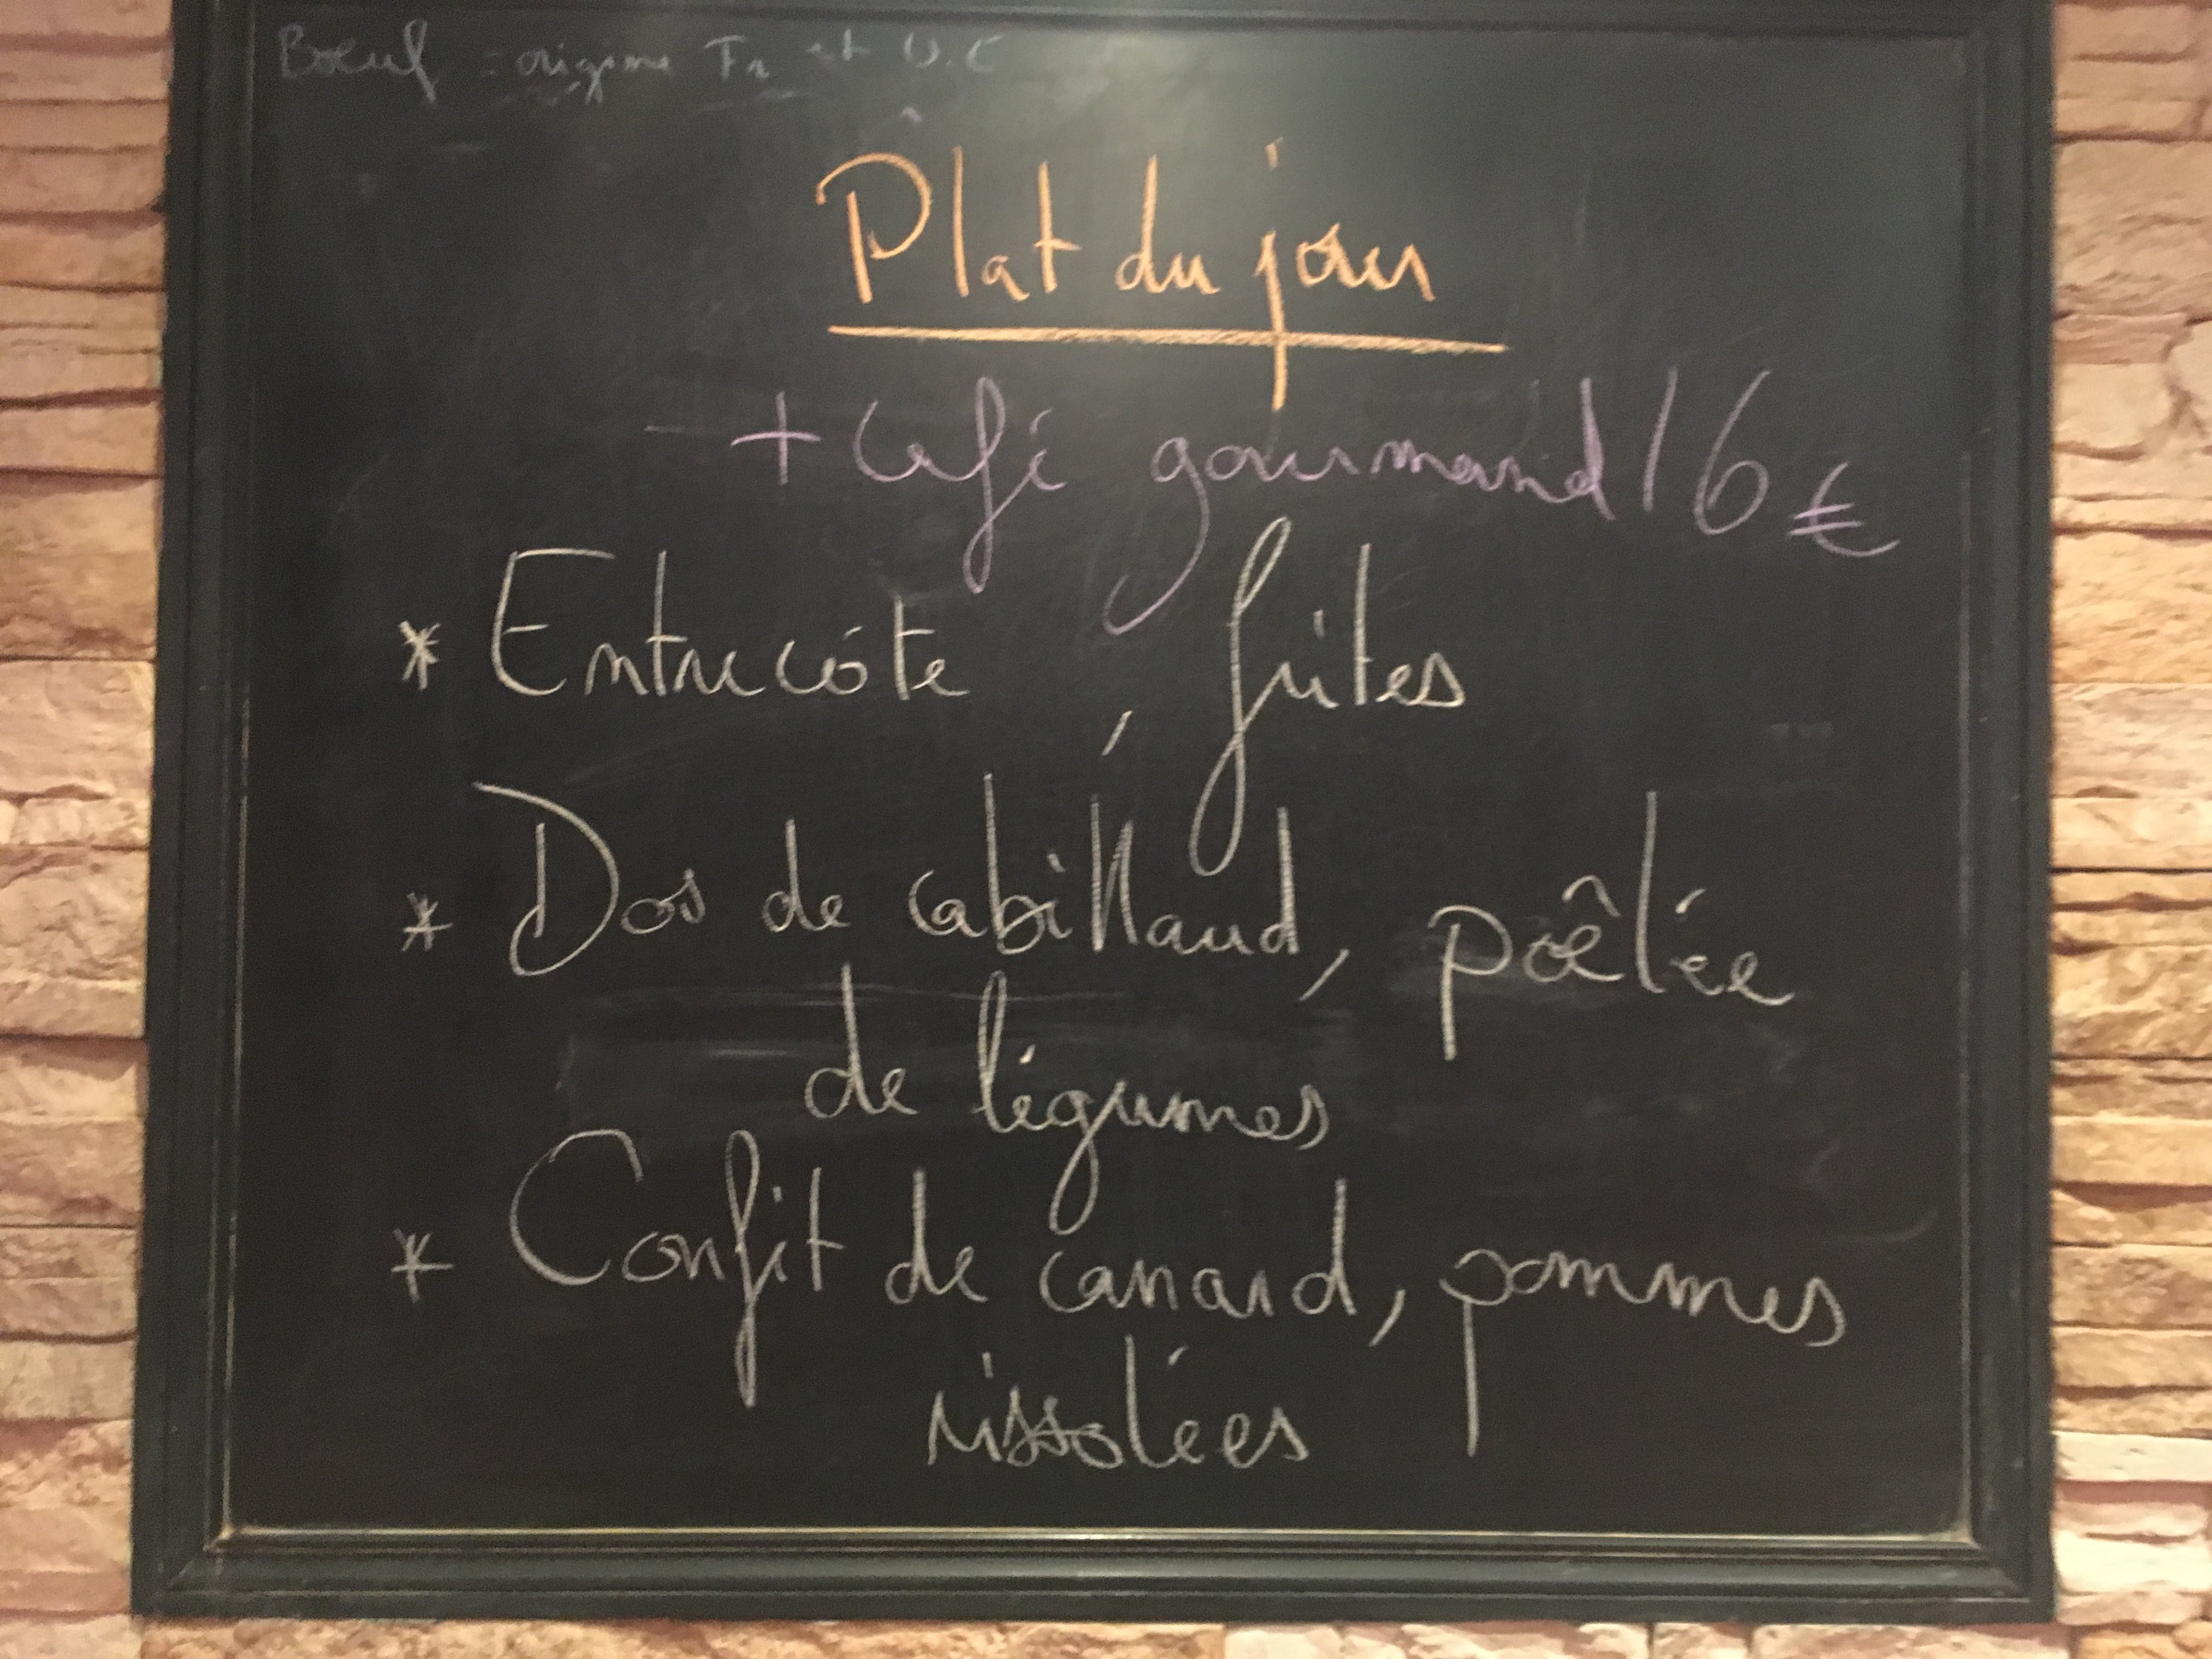 Bœuf = origine Fr et U.E
Plat du jour
+ Café gourmand 16 €
* Entrecôte, frites
* Dos de cabillaud, poêlée
de légumes
* Confit de canard, pommes
rissolées